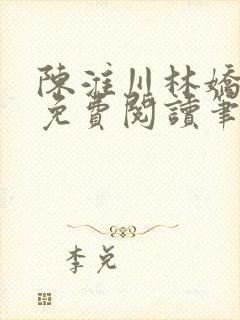 陳淮川林嬌
免費閱讀筆
李兌